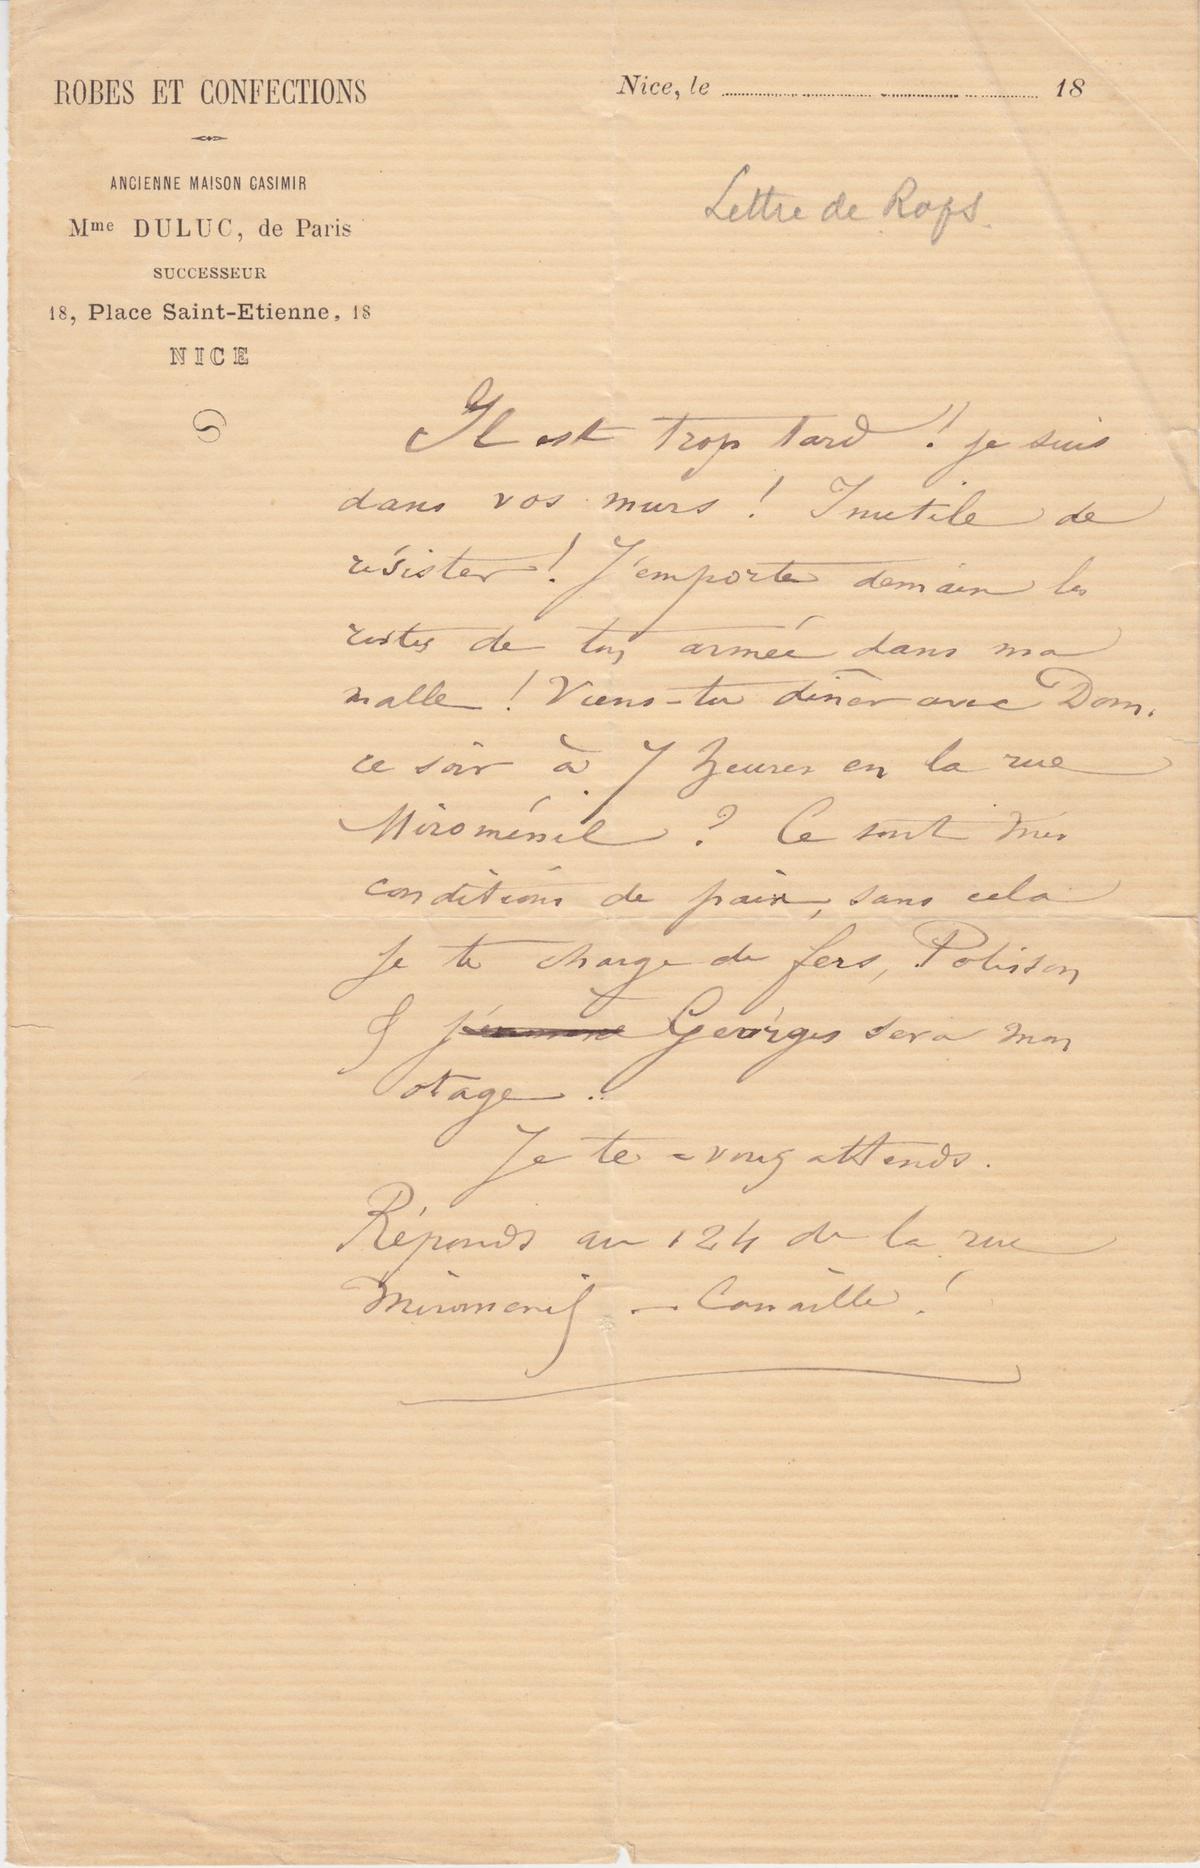 ROBES ET CONFECTIONS
ANCIENNE MAISON CASIMIR
Mme DULUC, de Paris
SUCCESSEUR
18, Place Saint-Etienne, 18
NICE
Nice, le 18
Lettre de Rops.
Il est trop tard ! je suis
dans vos murs ! Inutile de
résister ! J'emporte demain les
restes de ton armée dans ma
malle ! Viens-tu dîner avec Dom.
ce soir à 7 heures en la rue
Miroménil ? Ce sont mes
conditions de paix, sans cela
je te charge de fers, Polisson
& Georges sera mon
otage ..
Je te = vous attends.
Réponds au 124 de la rue
Miromenil — Canaille !